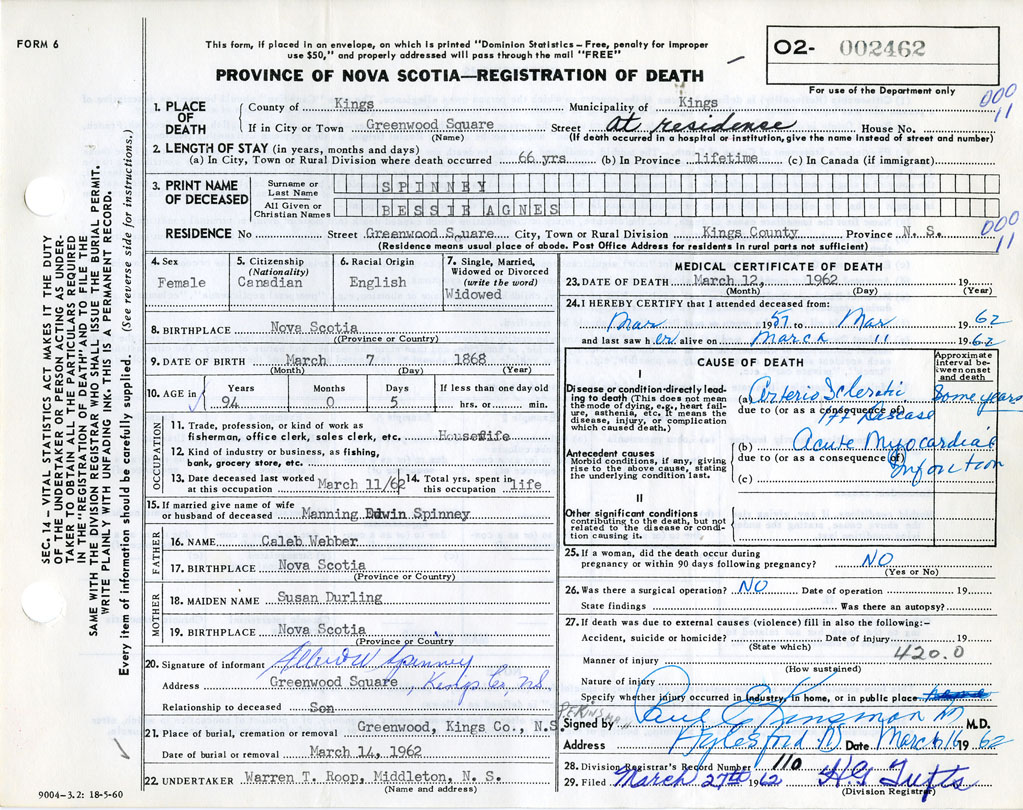 FORM 6
This form, if placed in an envelope, on which is printed "Dominion Statistics – Free, penalty for improper
use $50," and properly addressed will pass through the mail "FREE"
PROVINCE OF NOVA SCOTIA—REGISTRATION OF DEATH
O2- 002462
For use of the Department only
000
11
1. PLACE OF DEATH
County of Kings Municipality of Kings
If in City or Town Greenwood Square Street At residence House No.
(Name) (If death occurred in a hospital or institution, give the name instead of street and number)
2. LENGTH OF STAY (in years, months and days)
(a) In City, Town or Rural Division where death occurred 66 yrs. (b) In Province lifetime (c) In Canada (if immigrant)
3. PRINT NAME OF DECEASED
Surname or Last Name SPINNEY
All Given or Christian Names BESSIE AGNES
000
11
RESIDENCE No Street Greenwood Square City, Town or Rural Division Kings County Province N. S.
(Residence means usual place of abode. Post Office Address for residents in rural parts not sufficient)
4. Sex
Female
5. Citizenship
(Nationality)
Canadian
6. Racial Origin
English
7. Single, Married,
Widowed or Divorced
(write the word)
Widowed
8. BIRTHPLACE Nova Scotia
(Province or Country)
9. DATE OF BIRTH March 7 1868
(Month) (Day) (Year)
10. AGE in
Years Months Days If less than one day old
94 0 5 hrs. or min.
OCCUPATION
11. Trade, profession, or kind of work as
fisherman, office clerk, sales clerk, etc. Housewife
12. Kind of industry or business, as fishing,
bank, grocery store, etc.
13. Date deceased last worked
at this occupation March 11/62
14. Total yrs. spent in
this occupation life
15. If married give name of wife
or husband of deceased Manning Edwin Spinney
FATHER
16. NAME Caleb Webber
17. BIRTHPLACE Nova Scotia
(Province or Country)
MOTHER
18. MAIDEN NAME Susan Durling
19. BIRTHPLACE Nova Scotia
(Province or Country
20. Signature of informant Spinney
Address Greenwood Square, Kings Co, N.S.
Relationship to deceased Son
21. Place of burial, cremation or removal Greenwood, Kings Co., N.S.
Date of burial or removal March 14, 1962
22. UNDERTAKER Warren T. Roop, Middleton, N. S.
(Name and address)
MEDICAL CERTIFICATE OF DEATH
23. DATE OF DEATH March 12, 1962
(Month) (Day) (Year)
24. I HEREBY CERTIFY that I attended deceased from:
Mar 1957 to Mar 1962
and last saw her alive on March 11 1962
CAUSE OF DEATH
Approximate
interval be-
tween onset
and death
I
Disease or condition directly lead-
ing to death (This does not mean
the mode of dying, e.g., heart fail-
ure, asthenia, etc. It means the
disease, injury, or complication
which caused death.)
(a) Arterio Sclerotic Some years
due to (or as a consequence of)
Ht Disease
Antecedent causes
Morbid conditions, if any, giving
rise to the above cause, stating
the underlying condition last.
(b) Acute Myocardial
due to (or as a consequence of) Infarction
(c)
II
Other significant conditions
contributing to the death, but not
related to the disease or condi-
tion causing it.
25. If a woman, did the death occur during
pregnancy or within 90 days following pregnancy? NO
(Yes or No)
26. Was there a surgical operation? NO Date of operation 19
State findings Was there an autopsy?
27. If death was due to external causes (violence) fill in also the following:–
Accident, suicide or homicide? Date of injury 19
(State which)
420.0
Manner of injury
(How sustained)
Nature of injury
Specify whether injury occurred in industry, in home, or in public place
Signed by Paul Kinsman M.D.
Address Aylesford Date March 16 1962
28. Division Registrar's Record Number 110
29. Filed March 27th 1962 H G Tufts
(Division Registrar)
SEC. 14 – VITAL STATISTICS ACT MAKES IT THE DUTY
OF THE UNDERTAKER OR PERSON ACTING AS UNDER-
TAKER TO OBTAIN ALL THE PARTICULARS REQUIRED
IN THE "REGISTRATION OF DEATH" AND TO FILE THE
SAME WITH THE DIVISION REGISTRAR WHO SHALL ISSUE THE BURIAL PERMIT.
WRITE PLAINLY WITH UNFADING INK. THIS IS A PERMANENT RECORD.
Every item of information should be carefully supplied. (See reverse side for instructions.)
9004–3.2: 18-5-60